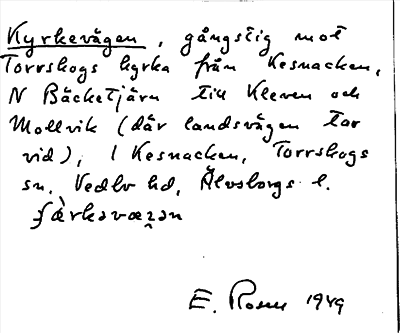 Kyrkevägen, gångstig mot
Torrskogs kyrka från Kesnacken,
N Bäcketjärn till Kleven och
Mollvik (där landsvägen tar
vid), i Kesnacken, Torrskogs
sn, Vedbo hd, Älvsborgs l.
E. Rosen 1949